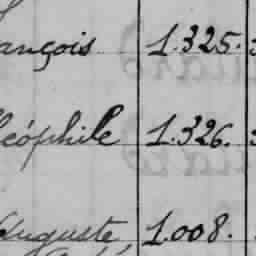 ançois 1.325.
éophile 1.326.
Auguste, 1.008.